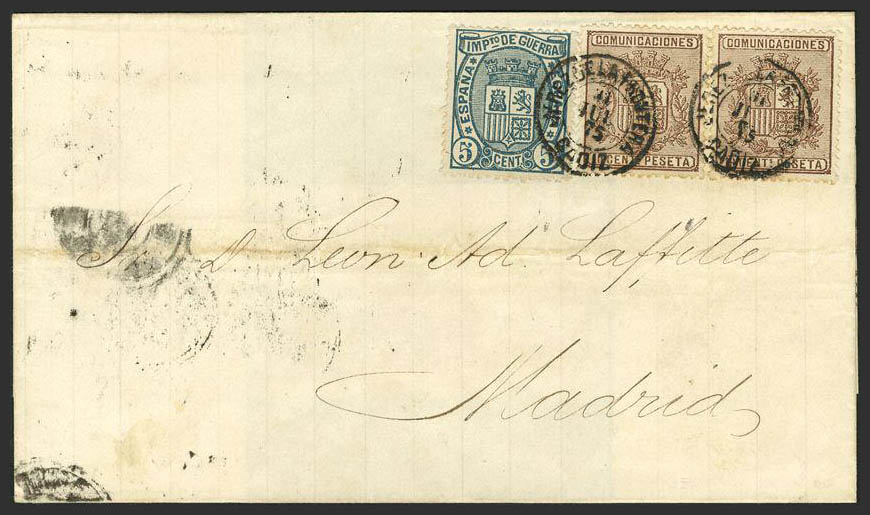 IMPTO DE GUERRA
ESPAÑA
5 CENT. 5
COMUNICACIONES
CENT PESETA
COMUNICACIONES
CENT. PESETA
JEREZ DE LA FRONTERA
11
JUL
75
CADIZ
JEREZ LA
11
75
CADIZ
Sr. D. Leon Ad. Laffitte
Madrid